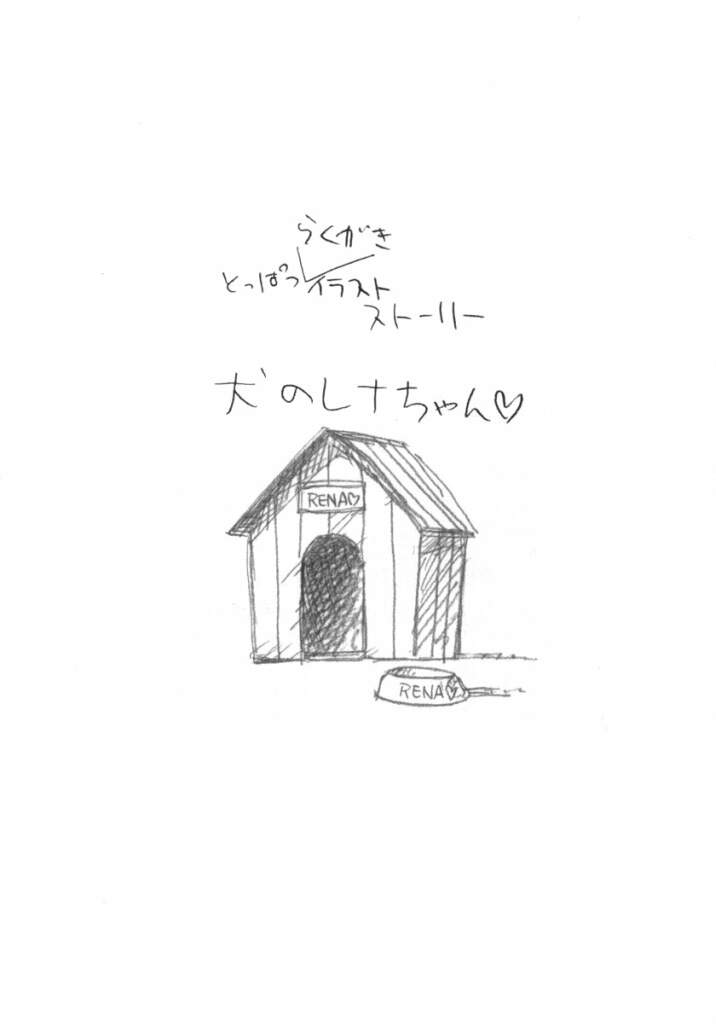 らくがき
とっぱつイラスト
ストーリー
犬のレナちゃん♡
RENA♡
RENA♡